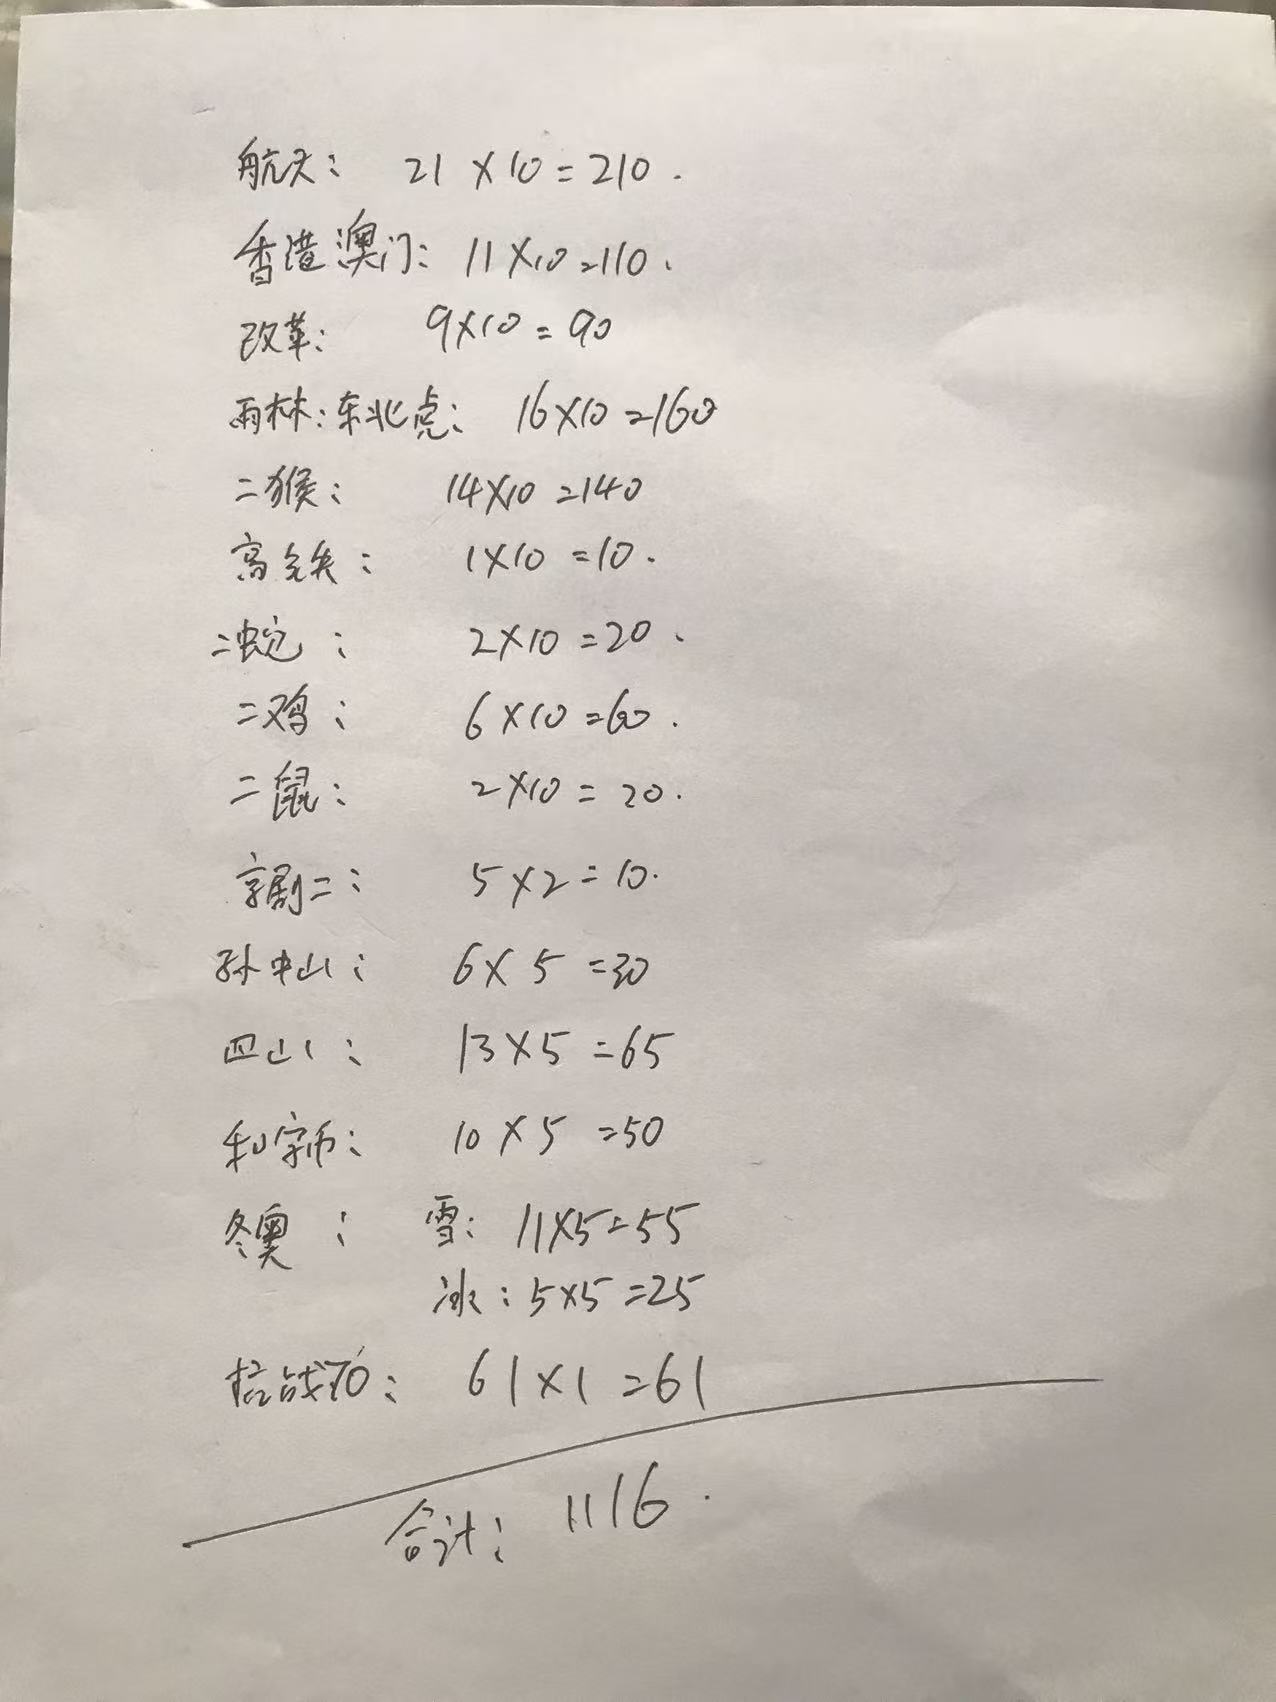 航天: 21×10=210.
香港澳门: 11×10=110.
改革: 9×10=90
雨林:东北虎: 16×10=160
二猴: 14×10=140
高铁: 1×10=10.
二蛇: 2×10=20.
二鸡: 6×10=60.
二鼠: 2×10=20.
京剧二: 5×2=10.
孙中山: 6×5=30
四山: 13×5=65
和字币: 10×5=50
冬奥: 雪: 11×5=55
冰: 5×5=25
抗战70: 61×1=61
合计: 1116.